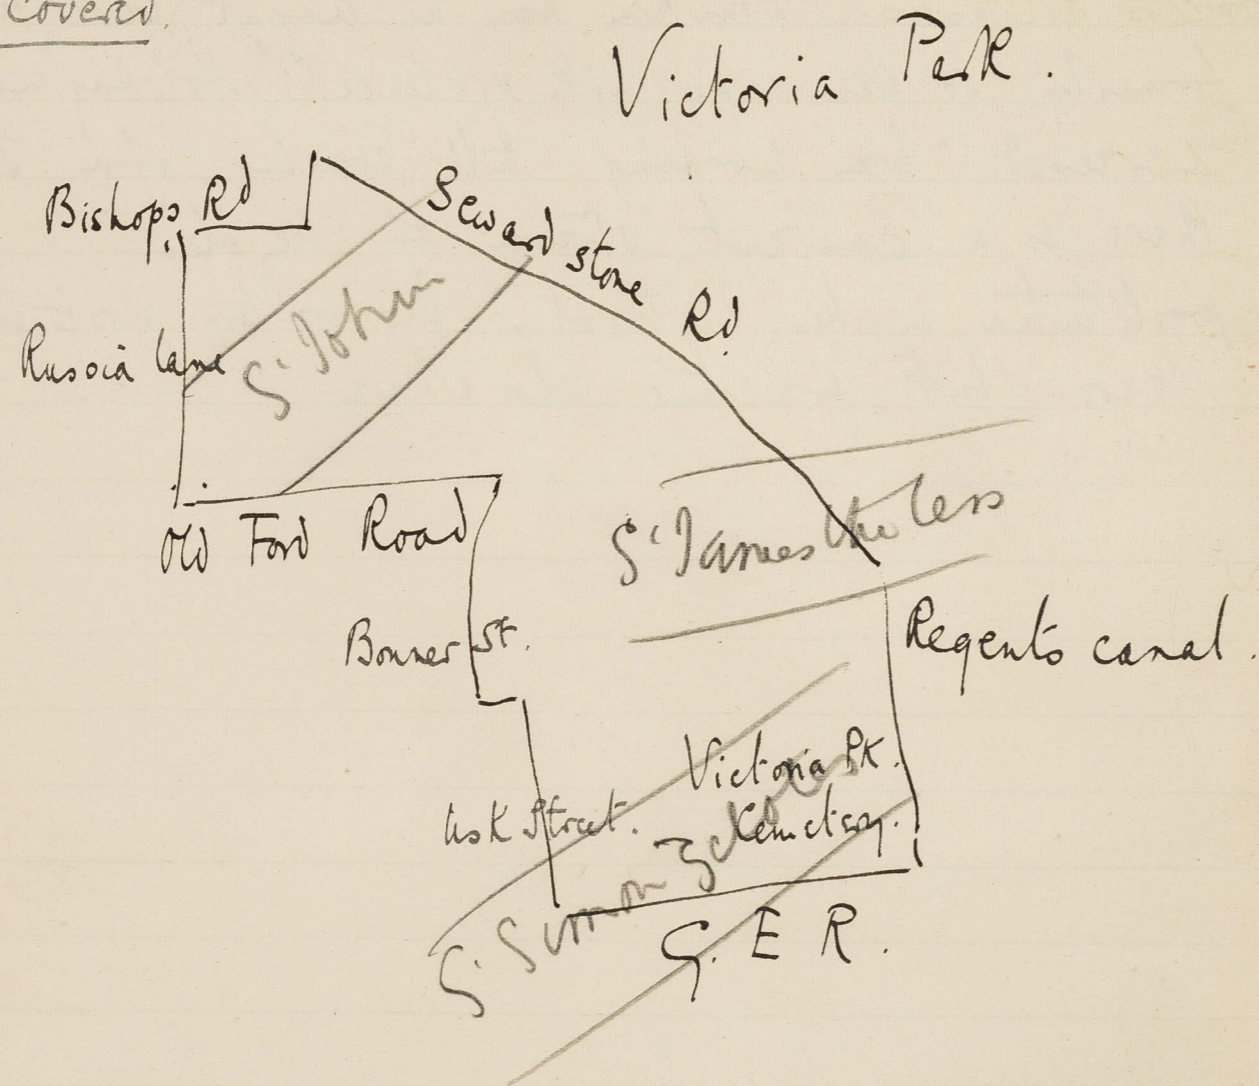 Covered.
Victoria Park.
Bishops Rd
Seward stone Rd.
Russia lane
St John
Old Ford Road
St James the Less
Bonner St.
Regents canal.
Victoria Pk.
Cemetery.
Usk Street.
St Simon Zelotes
G. E R.